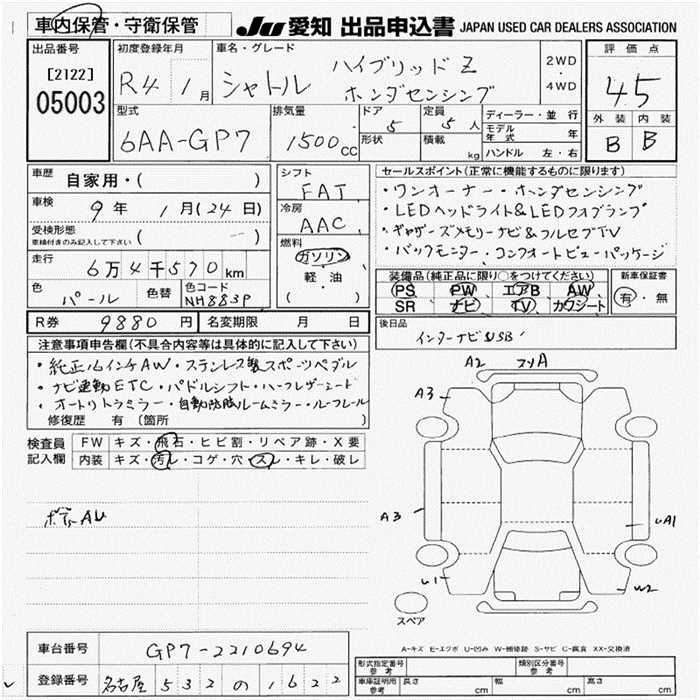 車内保管・守衛保管
JU 愛知 出品申込書 JAPAN USED CAR DEALERS ASSOCIATION
出品番号
[2122]
05003
初度登録年月
R4 1月
車名・グレード
シャトル
ハイブリッド Z
ホンダセンシング
2WD
・
4WD
評価点
4.5
外装 内装
B B
型式
6AA-GP7
排気量
1500cc
ドア 5
形状
定員 5人
積載 kg
ディーラー・並行
モデル年式 年
ハンドル 左・右
車歴 自家用・( )
車検 9年 1月(24日)
受検形態
車検付きのみ記入して下さい ( )
走行 6万4千570km
色 パール 色替 色コード NH883P
シフト
FAT
冷房
AAC
燃料
ガソリン
軽・油
( )
セールスポイント(正常に機能するものに限ります)
・ワンオーナー・ホンダセンシング
・LEDヘッドライト&LEDフォグランプ
・ギャザーズメモリーナビ&フルセグTV
・バックモニター・コンフォートビューパッケージ
装備品(純正品に限り○をつけてください)
PS PW エアB AW
SR ナビ TV カワシート
新車保証書
有・無
R券 9880円 名変期限 月 日
後日品
インターナビUSB
注意事項申告欄(不具合内容等は具体的に記入して下さい)
・純正16インチAW・ステンレス製スポーツペダル
・ナビ連動ETC・パドルシフト・ハーフレザーシート
・オートリトラミラー・自動防眩ルームミラー・ルーフレール
修復歴 有 (箇所 )
検査員記入欄
FW キズ・飛石・ヒビ割・リペア跡・X要
内装 キズ・汚レ・コゲ・穴・スレ・キレ・破レ
A2
A3
A3
UA1
U1
U2
スペア
A-キズ E-エクボ U-凹み W-補修跡 S-サビ C-腐食 XX-交換済
車台番号 GP7-2210694
登録番号 名古屋 532 の 1622
形式指定番号 参考
類別区分番号 参考
車庫証明用 参考 長さ cm 幅 cm 高さ cm